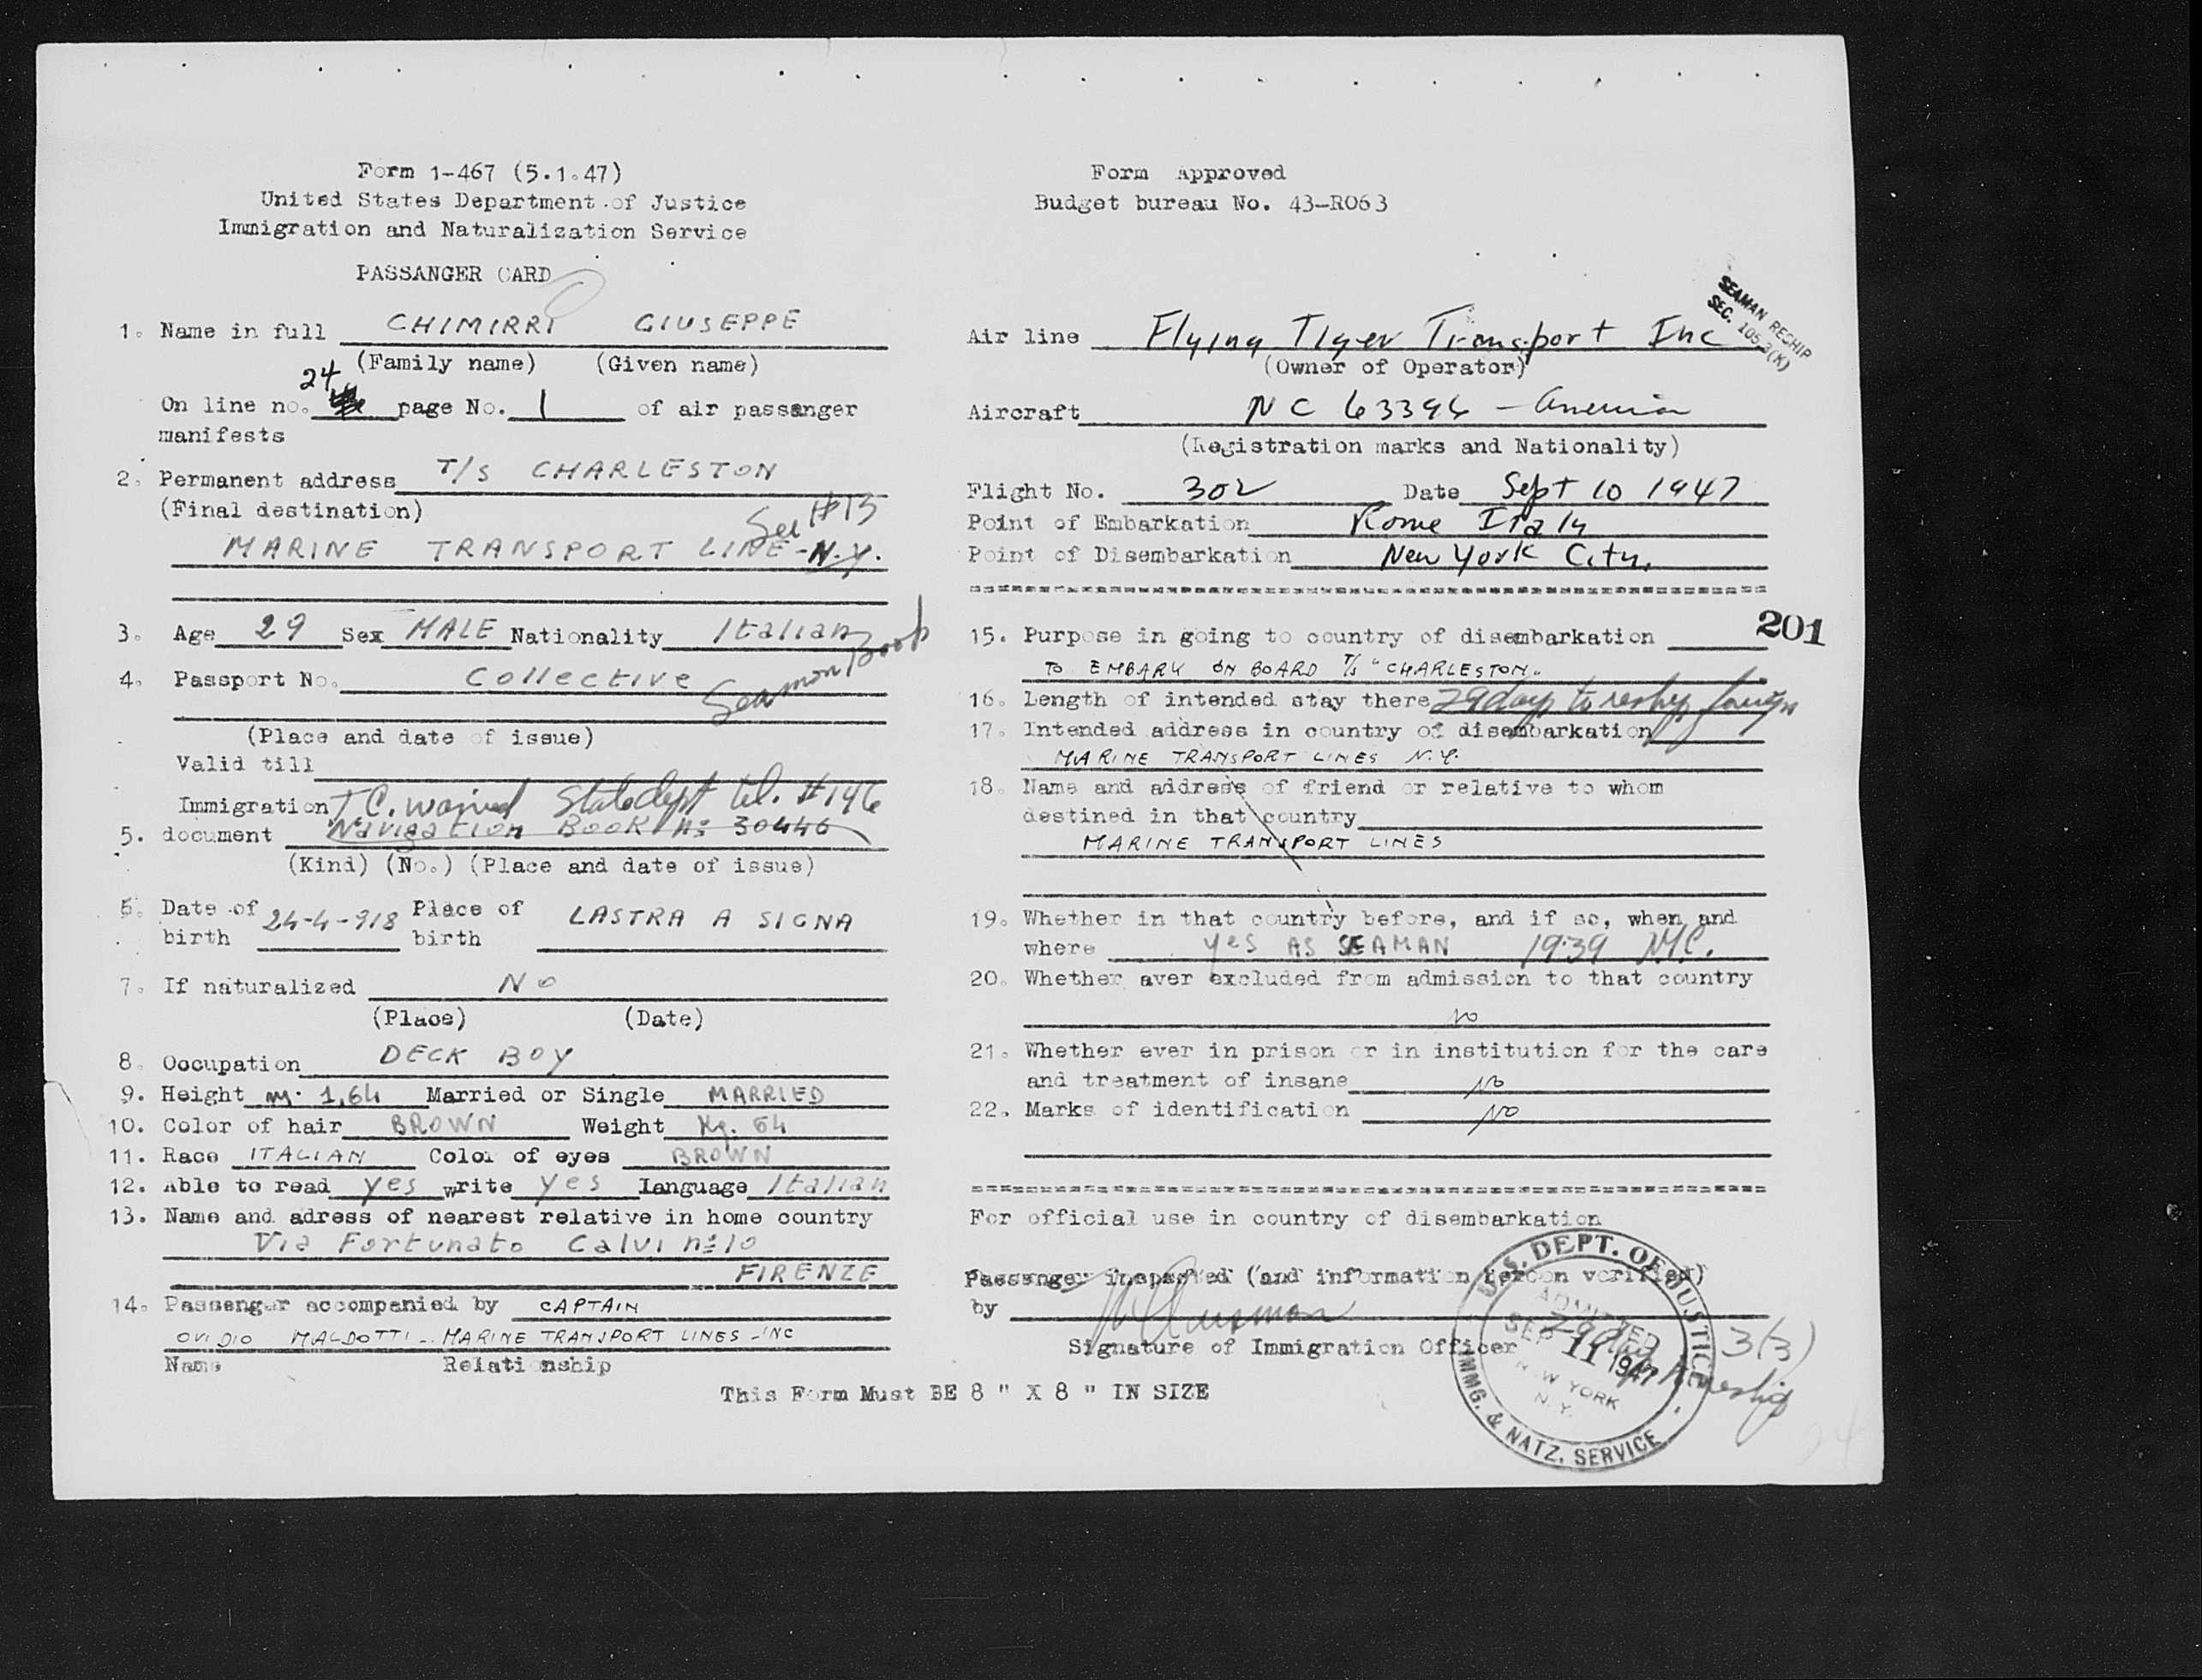 Form 1-467 (5.1.47)
United States Department of Justice
Immigration and Naturalization Service
PASSANGER CARD
1. Name in full CHIMIRRI GIUSEPPE
(Family name) (Given name)
24
On line no. page No. 1 of air passanger
manifests
2. Permanent address T/S CHARLESTON
(Final destination) See #13
MARINE TRANSPORT LINE - N.Y.
3. Age 29 Sex MALE Nationality Italian
4. Passport No. Collective Seaman Book
(Place and date of issue)
Valid till
Immigration T.C. waived State dept tel. #146
5. document Navigation Book N: 30446
(Kind) (No.) (Place and date of issue)
6. Date of 24-4-918 Place of LASTRA A SIGNA
birth birth
7. If naturalized No
(Place) (Date)
8. Occupation DECK BOY
9. Height m. 1,64 Married or Single MARRIED
10. Color of hair BROWN Weight Kg. 64
11. Race ITALIAN Color of eyes BROWN
12. Able to read yes write yes Language Italian
13. Name and adress of nearest relative in home country
Via Fortunato Calvi n: 10
FIRENZE
14. Passenger accompanied by CAPTAIN
OVIDIO MALDOTTI - MARINE TRANSPORT LINES - INC
Name Relationship
This Form Must BE 8 " X 8 " IN SIZE
Form Approved
Budget bureau No. 43-R063
SEAMAN RESHIP
SEC. 105.3(K)
Air line Flying Tiger Transport Inc
(Owner of Operator)
Aircraft NC 63396 - American
(Registration marks and Nationality)
Flight No. 302 Date Sept 10 1947
Point of Embarkation Rome Italy
Point of Disembarkation New York City.
201
15. Purpose in going to country of disembarkation
TO EMBARK ON BOARD T/S "CHARLESTON"
16. Length of intended stay there 29 days to reship foreign
17. Intended address in country of disembarkation
MARINE TRANSPORT LINES N.Y.
18. Name and address of friend or relative to whom
destined in that country
MARINE TRANSPORT LINES
19. Whether in that country before, and if so, when and
where yes AS SEAMAN 1939 N.Y.C.
20. Whether aver excluded from admission to that country
No
21. Whether ever in prison or in institution for the care
and treatment of insane No
22. Marks of identification No
For official use in country of disembarkation
Passenger inspected (and information hereon verified)
by
Signature of Immigration Officer
U.S. DEPT. OF JUSTICE
ADMITTED
SEP 11 1947
NEW YORK
N.Y.
IMMG. & NATZ. SERVICE
29 days to reship
3(3)
24